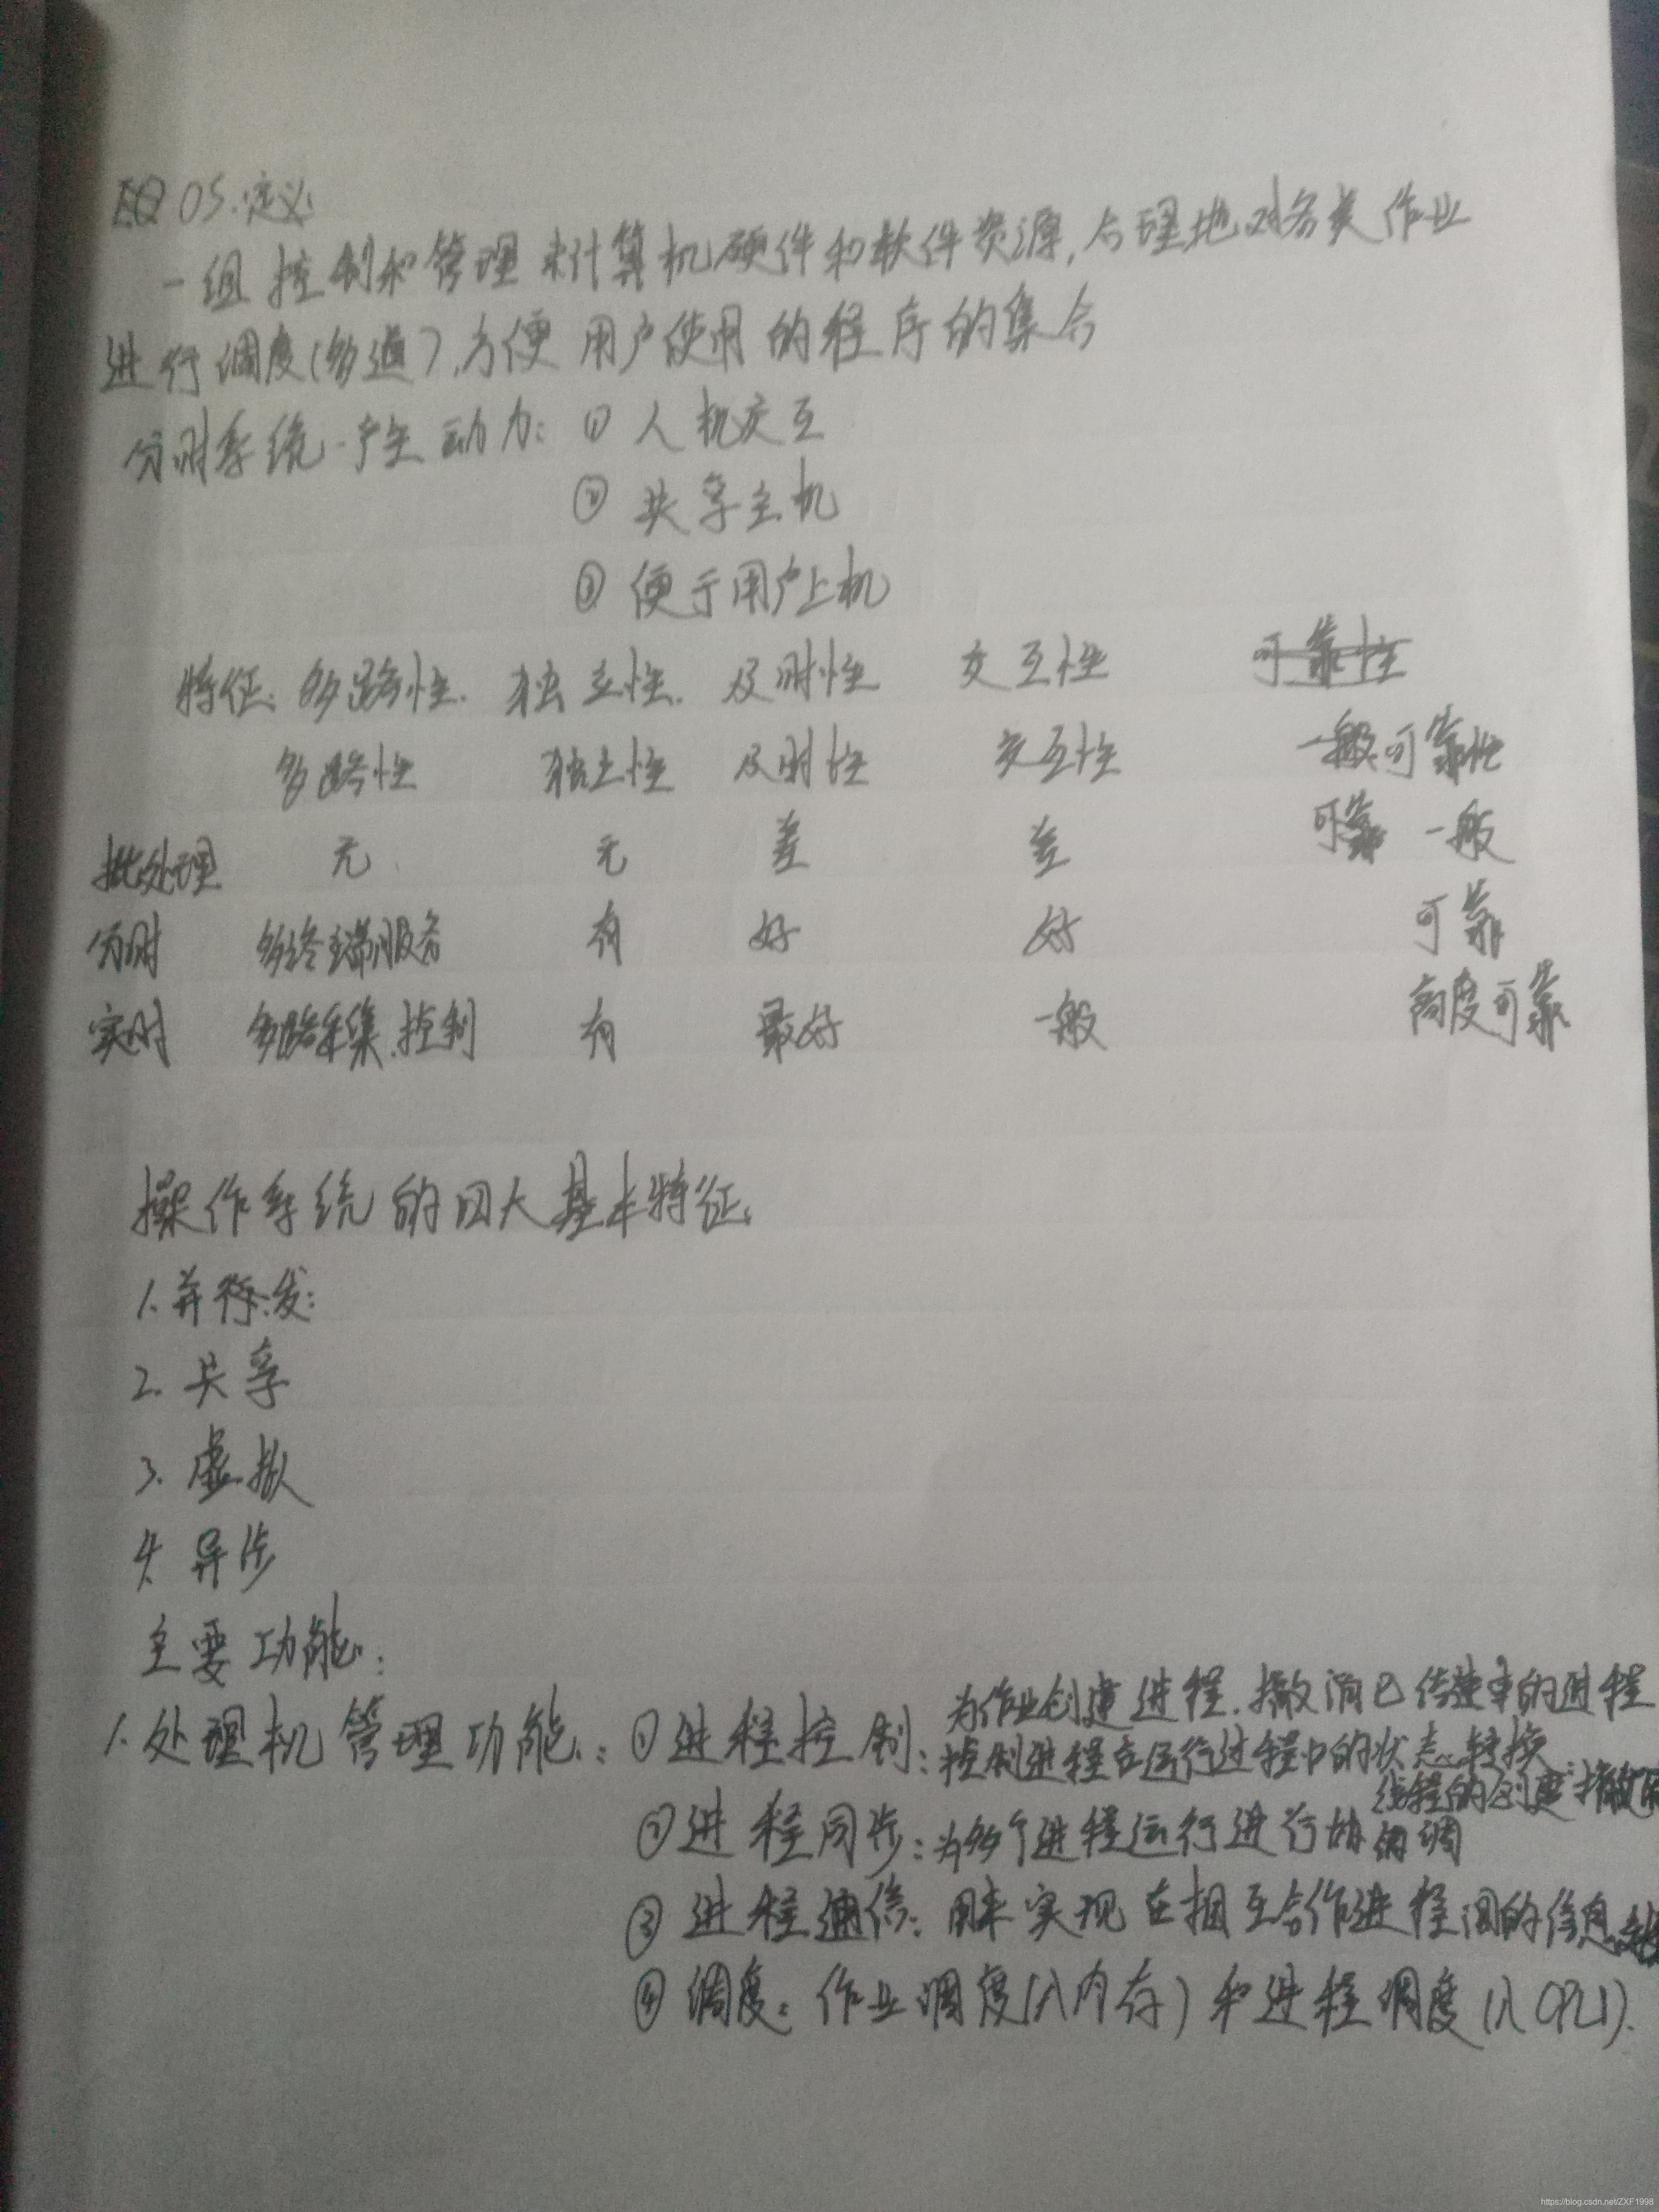 OS.定义
一组控制和管理计算机硬件和软件资源,合理地对各类作业
进行调度(多道),方便用户使用的程序的集合
分时系统.产生动力: ① 人机交互
② 共享主机
③ 便于用户上机
特征: 多路性. 独立性. 及时性 交互性 可靠性
多路性 独立性 及时性 交互性 一般可靠性
批处理 无 无 差 差 可靠 一般
分时 多终端服务 有 好 好 可靠
实时 多路采集.控制 有 最好 一般 高度可靠
操作系统的四大基本特征:
1.并发:
2.共享
3.虚拟
4.异步
主要功能:
为作业创建进程.撤消已结束的进程
1.处理机管理功能: ①进程控制: 控制进程在运行过程中的状态转换
线程的创建
②进程同步: 为多个进程运行进行协调
③进程通信: 用来实现在相互合作进程间的信息
④调度: 作业调度(入内存)和进程调度(入CPU).
https://blog.csdn.net/ZXF1998